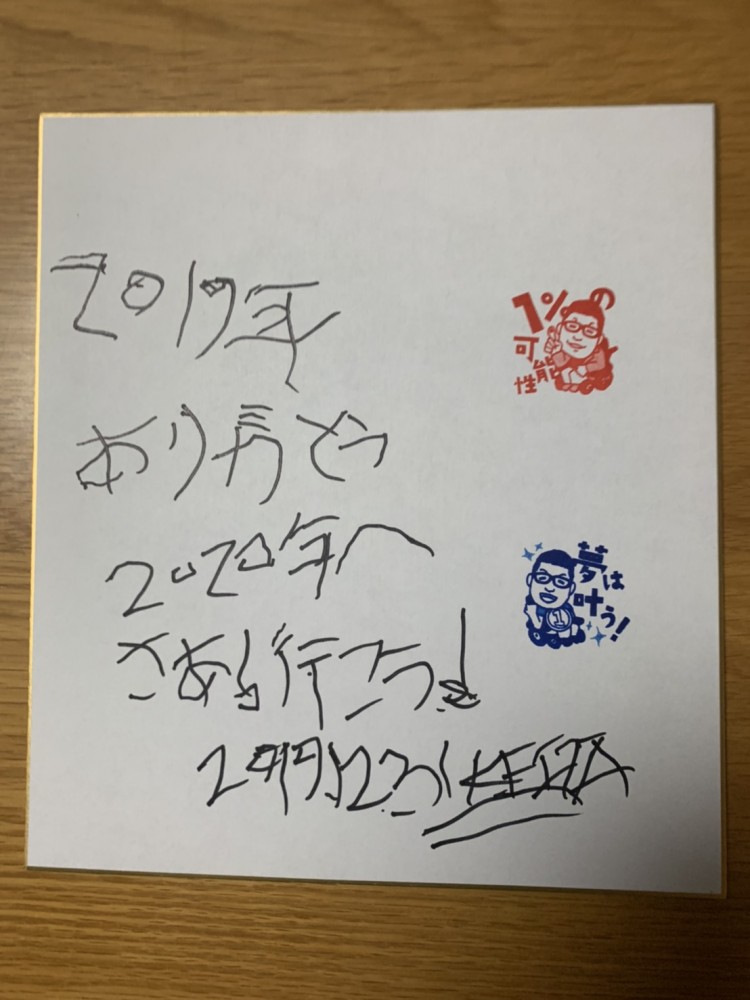 2019年
ありがとう
2020年へ
さあ行こう!
2019.12.31 KEITA
1%の
可能
性
夢は
叶う!
1